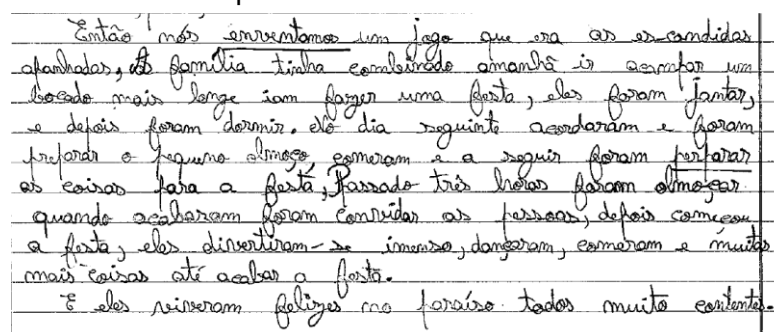 Então nós enventamos um jogo que era as escondidas
apanhadas, a família tinha combinado amanhã ir acampar um
bocado mais longe iam fazer uma festa, eles foram jantar,
e depois foram dormir. No dia seguinte acordaram e foram
preparar o pequeno almoço, comeram e a seguir foram perparar
as coisas para a festa, Passado três horas foram almoçar.
quando acabaram foram convidar as pessoas, depois começou
a festa, eles divertiram-se imenso, dançaram, comeram e muitas
mais coisas até acabar a festa.
E eles viveram felizes no paraíso todos muito contentes.